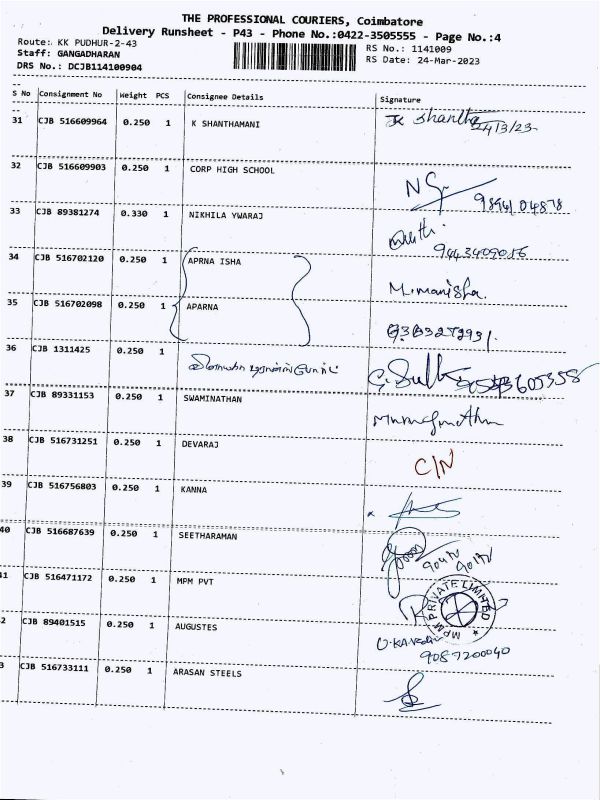 THE PROFESSIONAL COURIERS, Coimbatore
Delivery Runsheet - P43 - Phone No.:0422-3505555 - Page No.:4
Route: KK PUDHUR-2-43 RS No.: 1141009
Staff: GANGADHARAN RS Date: 24-Mar-2023
DRS No.: DCJB114100904
S No Consignment No Weight PCS Consignee Details Signature
31 CJB 516609964 0.250 1 K SHANTHAMANI K Shantha 24/3/23
32 CJB 516609903 0.250 1 CORP HIGH SCHOOL
9894104878
33 CJB 89381274 0.330 1 NIKHILA YWARAJ
9443409056
34 CJB 516702120 0.250 1 APRNA ISHA M.manisha.
35 CJB 516702098 0.250 1 APARNA
36 CJB 1311425 0.250 1
37 CJB 89331153 0.250 1 SWAMINATHAN
38 CJB 516731251 0.250 1 DEVARAJ C/N
39 CJB 516756803 0.250 1 KANNA
40 CJB 516687639 0.250 1 SEETHARAMAN
1 CJB 516471172 0.250 1 MPM PVT MPM PRIVATE LIMITED
2 CJB 89401515 0.250 1 AUGUSTES
9087200040
3 CJB 516733111 0.250 1 ARASAN STEELS